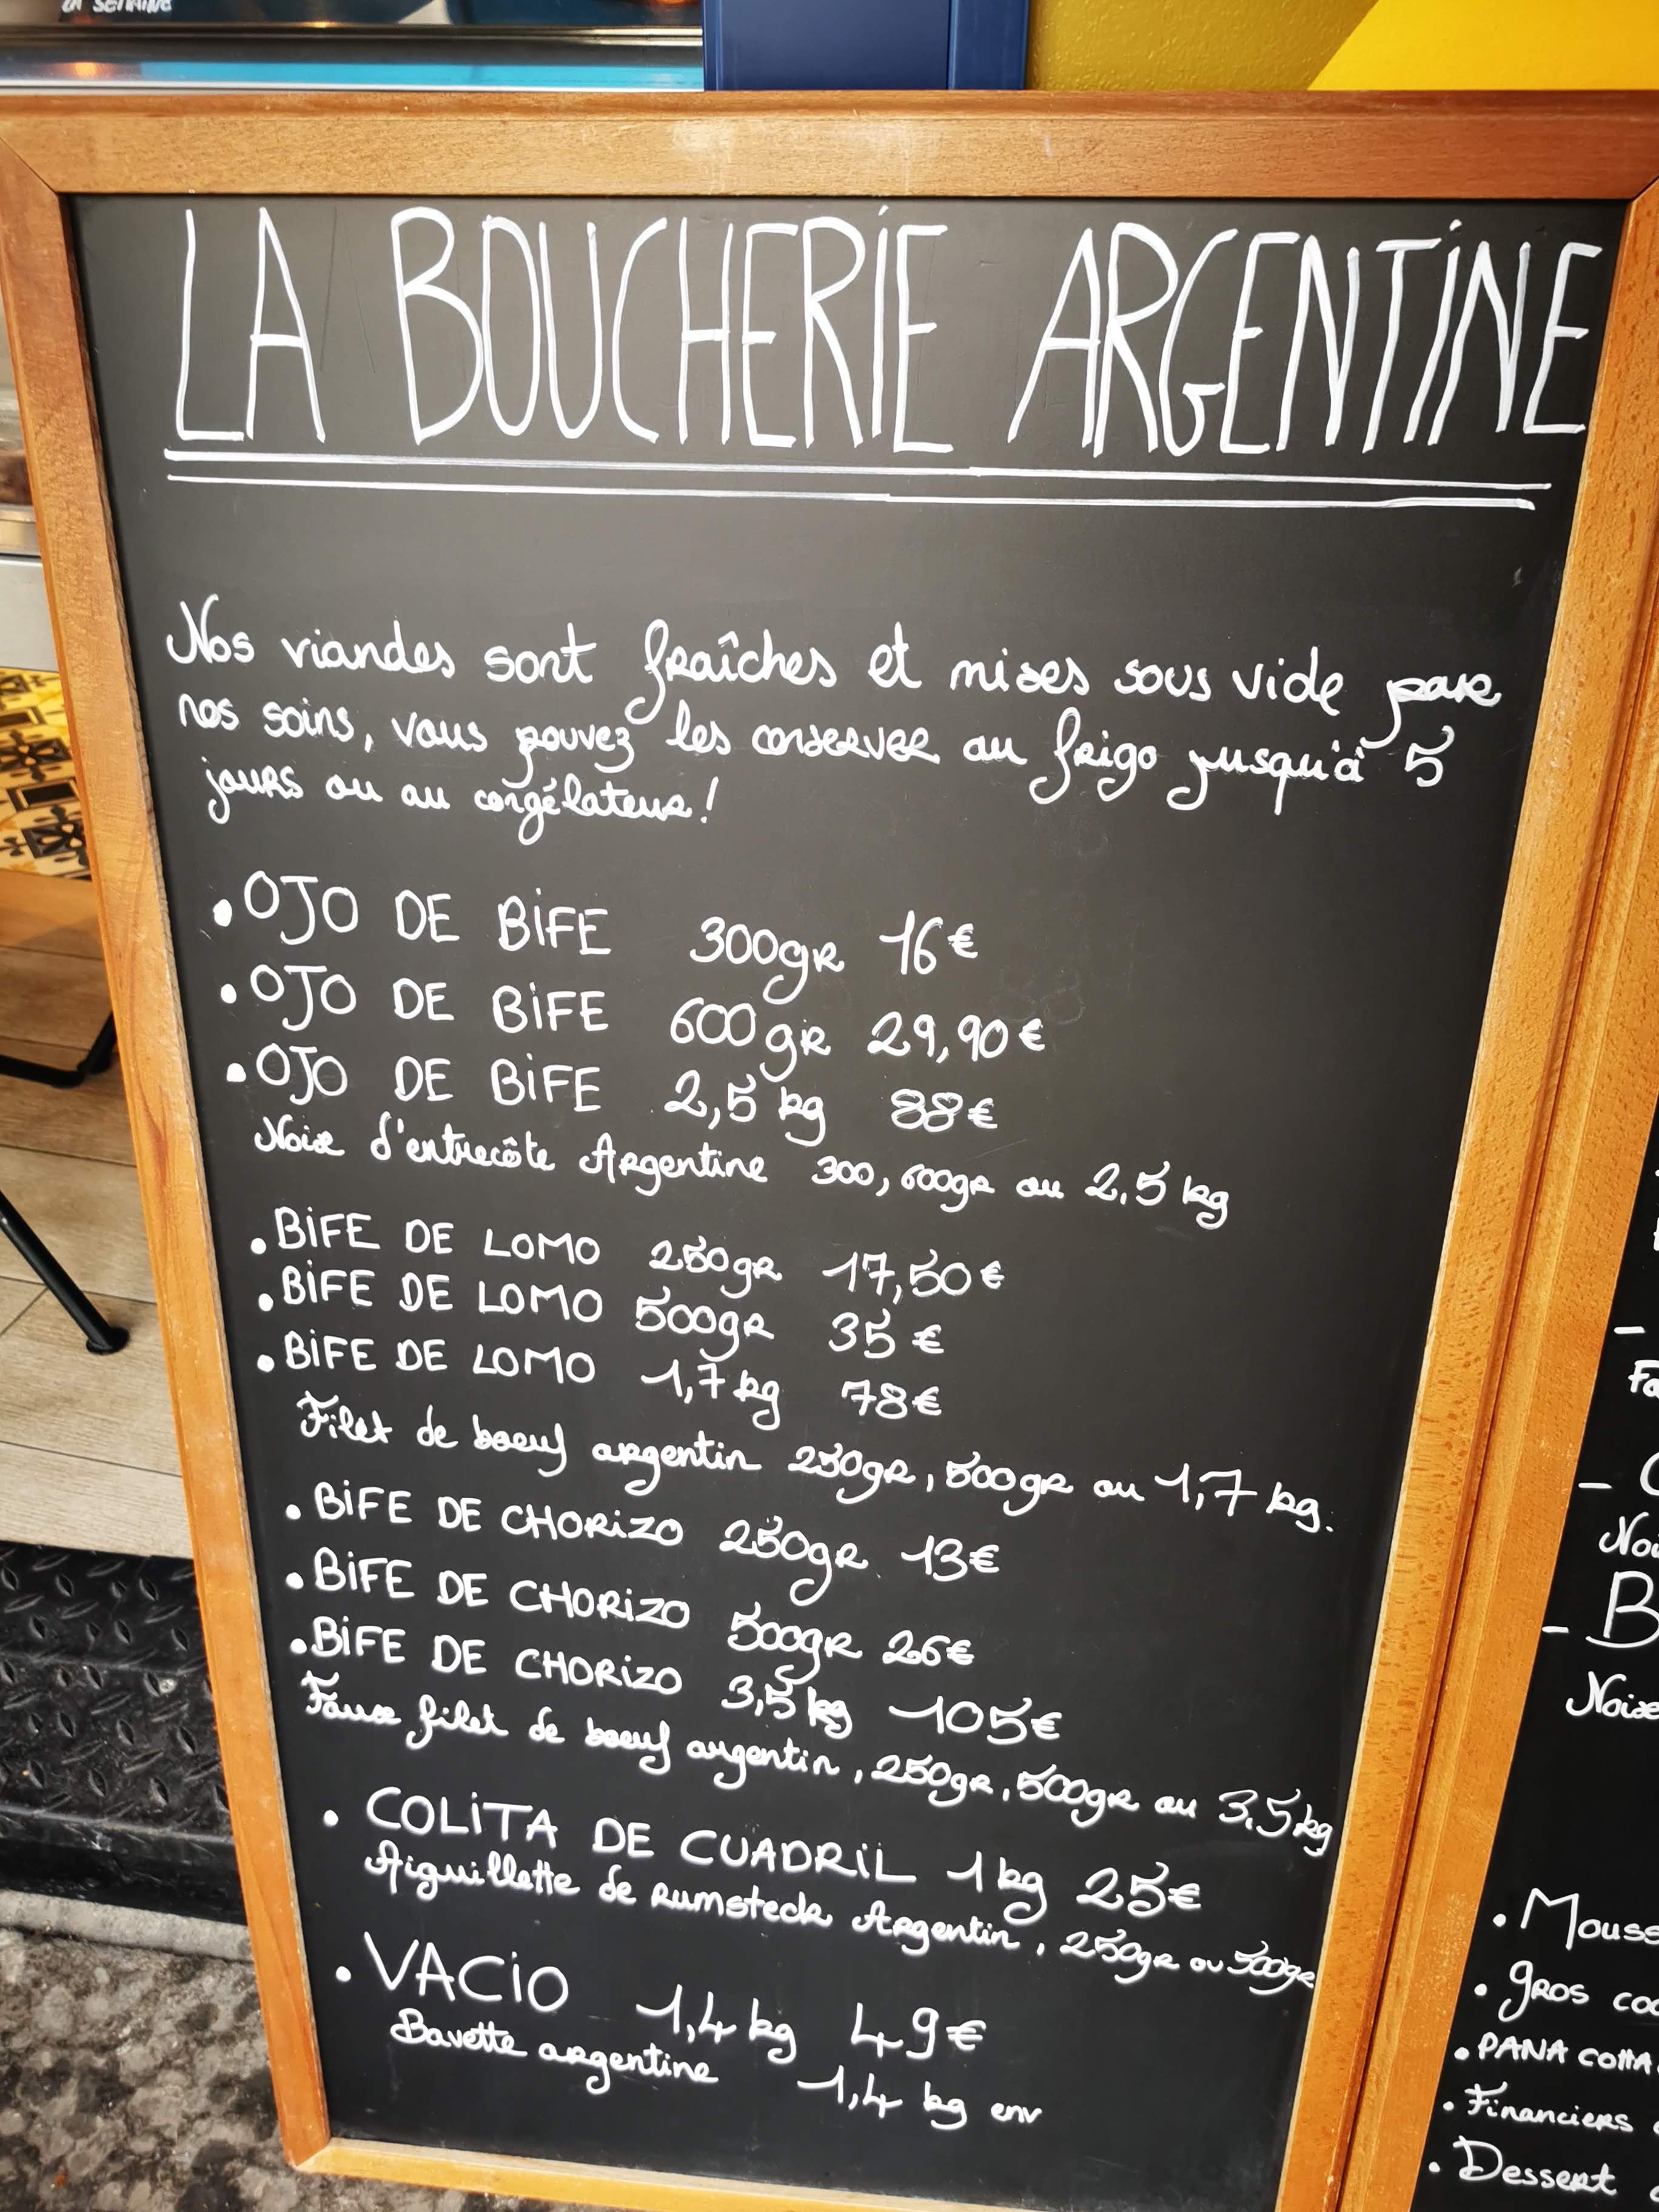 LA SEMAINE
LA BOUCHERIE ARGENTINE
Nos viandes sont fraîches et mises sous vide par
nos soins, vous pouvez les conserver au frigo jusqu'à 5
jours ou au congélateur!
• OJO DE BIFE 300gr 16€
• OJO DE BIFE 600gr 29,90€
• OJO DE BIFE 2,5 kg 88€
Noix d'entrecôte Argentine 300, 600gr ou 2,5 kg
• BIFE DE LOMO 250gr 17,50€
• BIFE DE LOMO 500gr 35€
• BIFE DE LOMO 1,7kg 78€
Filet de boeuf argentin 250gr, 500gr ou 1,7 kg.
• BIFE DE CHORIZO 250gr 13€
• BIFE DE CHORIZO 500gr 26€
• BIFE DE CHORIZO 3,5kg 105€
Faux filet de boeuf argentin, 250gr, 500gr ou 3,5kg
• COLITA DE CUADRIL 1kg 25€
Aiguillette de rumsteck Argentin, 250gr ou 500gr
• VACIO 1,4 kg 49€
Bavette argentine 1,4 kg env
- B
• Mouss
• Gros coo
• PANA COTTA
• Financiers
• Dessert